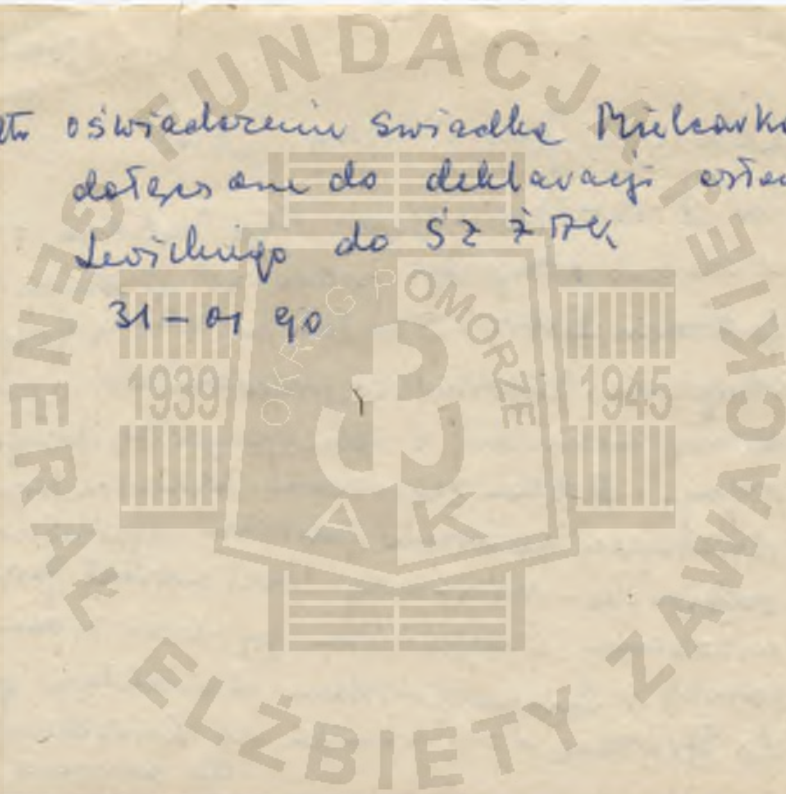 oświadczenie świadka Mielcark
dołączone do deklaracji człon
Lewickiego do ŚZŻAK
31-01 90
FUNDACJA
GENERAŁ ELŻBIETY ZAWACKIEJ
OKRĘG POMORZE
1939
1945
AK